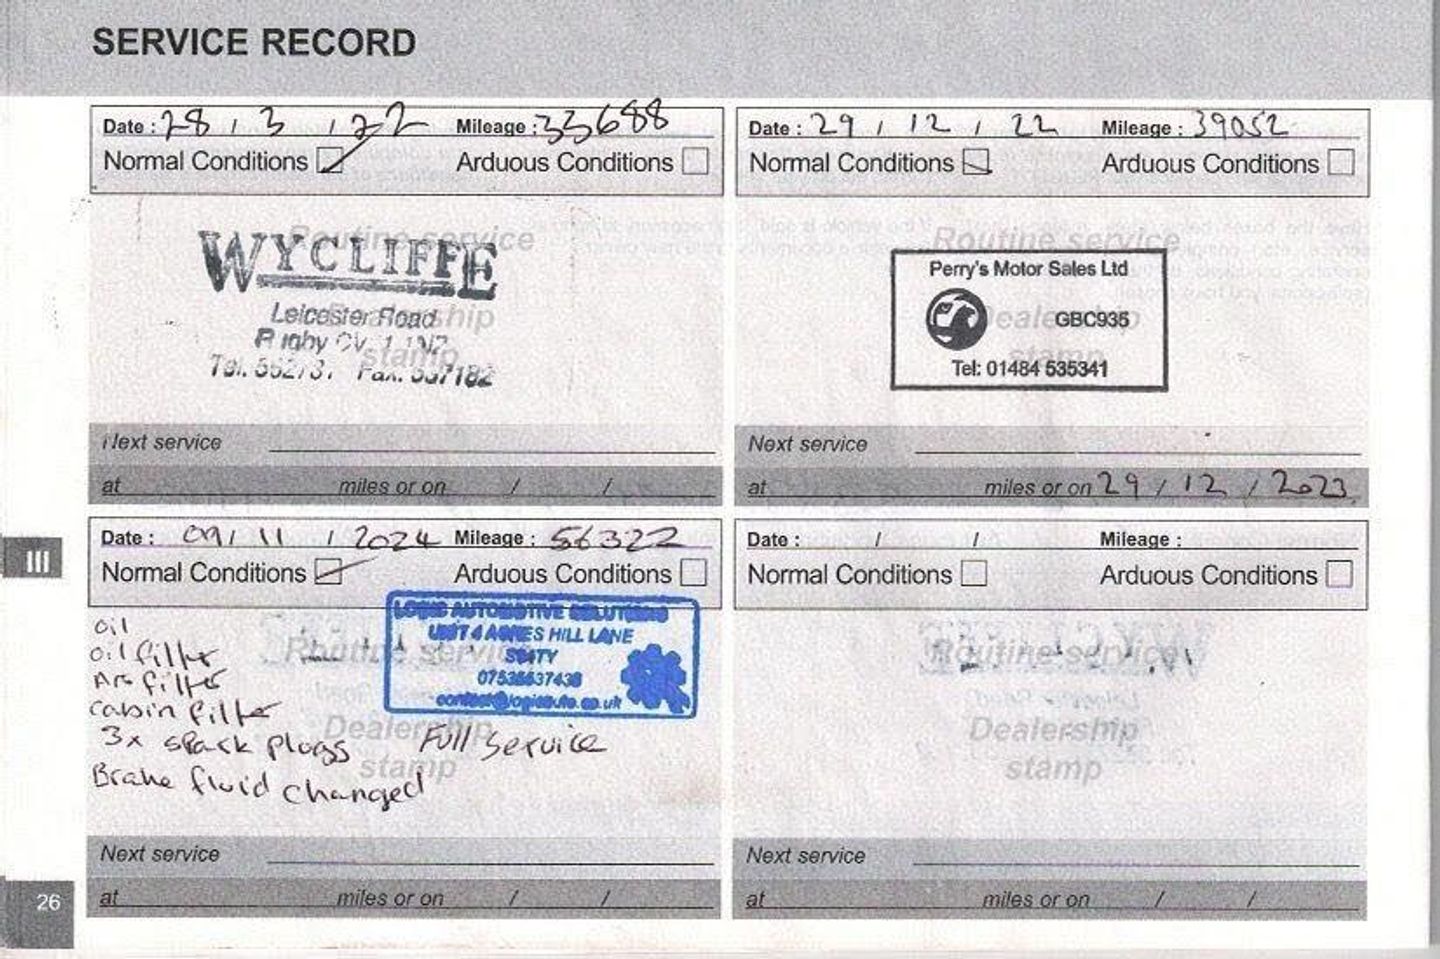 SERVICE RECORD
Date : 28 / 3 / 22 Mileage : 33688
Normal Conditions Arduous Conditions
Routine service
Dealership
stamp
WYCLIFFE
Leicester Road
Rugby CV
Tel. Fax. 537182
Next service
at miles or on / /
Date : 29 / 12 / 22 Mileage : 39052
Normal Conditions Arduous Conditions
Routine service
Dealership
stamp
Perry's Motor Sales Ltd
GBC935
Tel: 01484 535341
Next service
at miles or on 29 / 12 / 2023
III
Date : 09 / 11 / 2024 Mileage : 56322
Normal Conditions Arduous Conditions
Routine service
Dealership
stamp
AUTOMOTIVE SOLUTIONS
UNIT 4 AGNES HILL LANE
oil
oil filter
Air filter
cabin filter
3x spark plugs
Full service
Brake fluid changed
Next service
at miles or on / /
Date : / / Mileage :
Normal Conditions Arduous Conditions
Routine service
Dealership
stamp
Next service
at miles or on / /
26